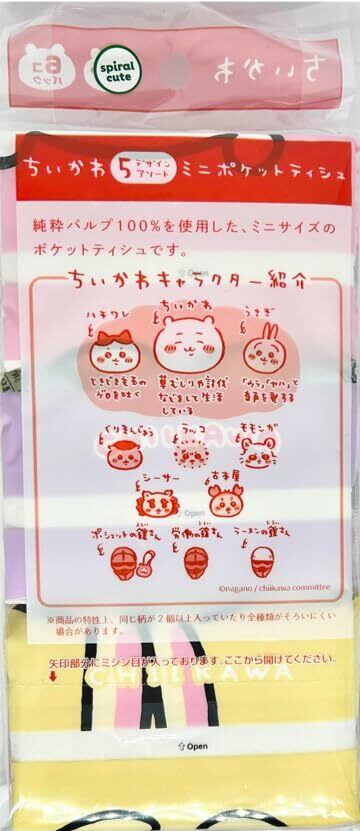 6コ
パック
spiral
cute
ちいかわ
ちいかわ 5 デザイン
アソート ミニポケットティシュ
純粋パルプ100%を使用した、ミニサイズの
ポケットティシュです。
Open
ちいかわキャラクター紹介
ハチワレ
ちいかわ
うさぎ
ときどきモモの
草むしりや討伐
などをして生活
している
「ウラ」「ヤハ」と
奇声を発する
くりまんじゅう
ラッコ
モモンガ
シーサー
古本屋
Open
ポシェットの鎧さん
よろい
労働の鎧さん
よろい
ラーメンの鎧さん
よろい
©nagano / chiikawa committee
※商品の特性上、同じ柄が2個以上入っていたり全種類がそろいにくい
場合があります。
矢印部分にミシン目が入っております。ここから開けてください。
CHIIKAWA
Open